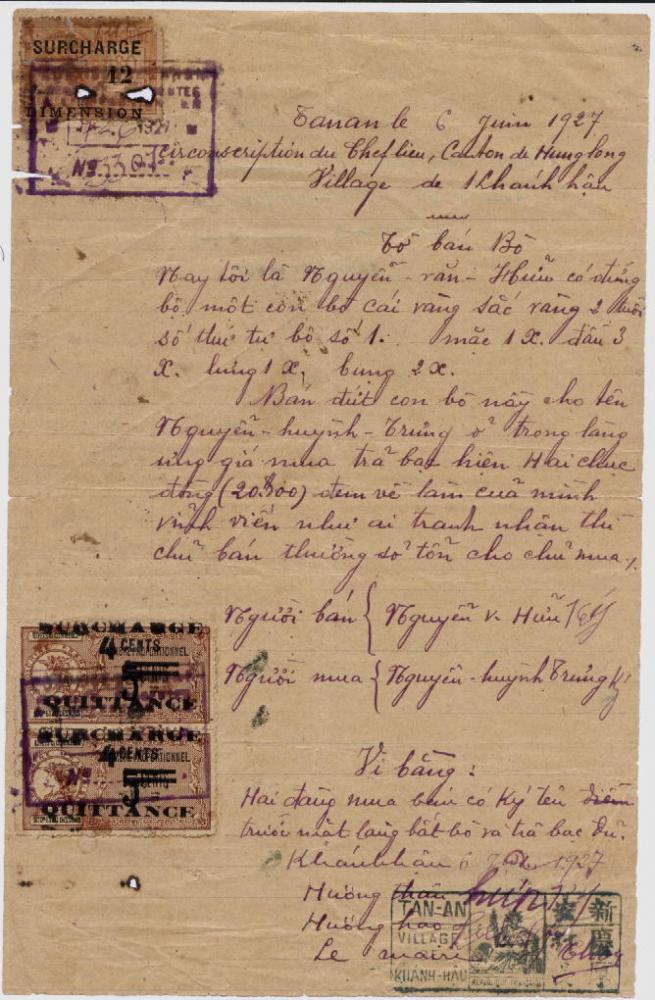 SURCHARGE
12
DIMENSION
Nº 3307
Tanan le 6 Juin 1927
Circonscription du Chef lieu, Canton de Hưng long
Village de Khánh hậu
Tờ bán Bò
Nay tôi là Nguyễn-văn-Hữu có đứng
bộ một con bò cái vàng sắc vàng 2 tuổi
số thứ tự bộ số 1. mặc 1 X. đầu 3
X. lưng 1 X, bụng 2 X.
Bán đứt con bò nầy cho tên
Nguyễn-huỳnh-Trưng ở trong làng
ưng giá mua trả bạc hiện Hai chục
đồng (20$00) đem về làm của mình
vĩnh viễn như ai tranh nhận thì
chủ bán thường sở tổn cho chủ mua./.
Người bán { Nguyễn V. Hữu Ký
Người mua { Nguyễn-huỳnh Trưng Ký
SURCHARGE
4 CENTS
5
QUITTANCE
SURCHARGE
4 CENTS
5
QUITTANCE
Vi bằng:
Hai đàng mua bán có Ký tên điểm
trước mặt làng bắt bò và trả bạc đủ.
Khánh hậu 6 1927
Hương thân
Hương hào
Le maire
TAN-AN
VILLAGE
KHÁNH-HẬU
新
安
慶